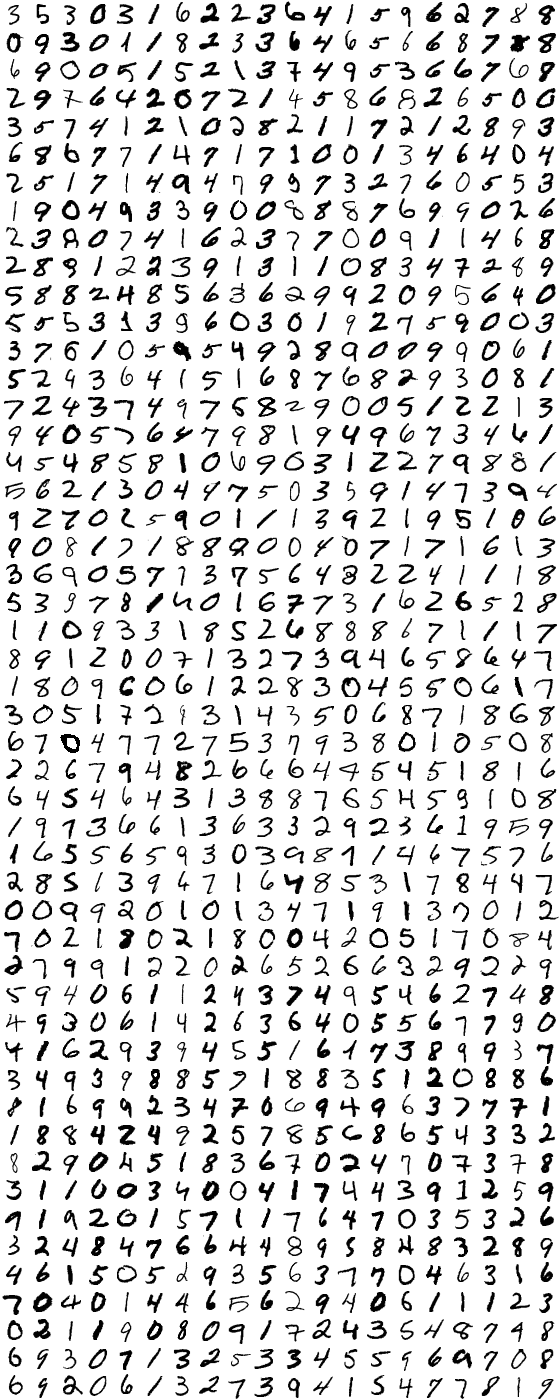 3 5 3 0 3 1 6 2 2 3 6 4 1 5 9 6 2 7 8 8
0 9 3 0 1 1 8 2 3 3 6 4 6 5 6 6 8 7 8 8
6 9 0 0 5 1 5 2 1 3 7 4 9 5 3 6 6 7 6 8
2 9 7 6 4 2 0 7 2 1 4 5 8 6 8 2 6 5 0 0
3 5 7 4 1 2 1 0 2 8 2 1 1 7 2 1 2 8 9 3
6 8 6 7 7 1 4 7 1 7 1 0 0 1 3 4 6 4 0 4
2 5 1 7 1 4 9 4 7 9 9 7 3 2 7 6 0 5 5 3
1 9 0 4 9 3 3 9 0 0 8 8 8 7 6 9 9 0 2 6
2 3 8 0 7 4 1 6 2 3 7 7 0 0 9 1 1 4 6 8
2 8 9 1 2 2 3 9 1 3 1 1 0 8 3 4 7 2 8 9
5 8 8 2 4 8 5 6 3 6 2 9 9 2 0 9 5 6 4 0
5 5 5 3 1 3 9 6 0 3 0 1 9 2 7 5 9 0 0 3
3 7 6 1 0 5 9 5 4 9 2 8 9 0 0 9 9 0 6 1
5 2 9 3 6 4 1 5 1 6 8 7 6 8 2 9 3 0 8 1
7 2 4 3 7 4 9 7 5 8 2 9 0 0 5 1 2 2 1 3
9 4 0 5 7 6 4 7 9 8 1 9 4 9 6 7 3 4 6 1
4 5 4 8 5 8 1 0 6 9 0 3 1 2 2 7 9 8 8 1
5 6 2 1 3 0 4 4 7 5 0 3 5 9 1 4 7 3 9 4
9 2 7 0 2 5 9 0 1 1 1 3 9 2 1 9 5 1 0 6
9 0 8 1 7 1 8 8 2 0 0 4 0 7 1 7 1 6 1 3
3 6 9 0 5 7 7 3 7 5 6 4 3 2 2 4 1 1 1 8
5 3 9 7 8 1 4 0 1 6 7 7 3 1 6 2 6 5 2 8
1 1 0 9 3 3 1 8 5 2 6 8 8 8 6 7 1 1 1 7
8 9 1 2 0 0 7 1 3 2 7 3 9 4 6 5 8 6 4 7
1 8 0 9 6 0 6 1 2 2 8 3 0 4 5 5 0 6 1 7
3 0 5 1 7 2 9 3 1 4 3 5 0 6 8 7 1 8 6 8
6 7 0 4 7 7 2 7 5 3 7 9 3 8 0 1 0 5 0 8
2 2 6 7 9 4 8 2 6 6 6 4 4 5 4 5 1 8 1 6
6 4 5 4 6 4 3 1 3 8 8 7 6 5 4 5 9 1 0 8
1 9 7 3 6 6 1 3 6 3 3 2 9 2 3 6 1 9 5 9
1 6 5 5 6 5 9 3 0 3 9 8 7 1 4 6 7 5 7 6
2 8 5 1 3 9 4 7 1 6 4 8 5 3 1 7 8 4 4 7
0 0 9 9 2 0 1 0 1 3 4 7 1 9 1 3 7 0 1 2
7 0 2 1 8 0 2 1 8 0 0 4 2 0 5 1 7 0 8 4
2 7 9 9 1 2 2 0 2 6 5 2 6 6 3 2 9 2 2 9
5 9 4 0 6 1 1 2 4 3 7 4 9 5 4 6 2 7 4 8
4 9 3 0 6 1 4 2 6 3 6 4 0 5 5 6 7 7 9 0
4 1 6 2 9 3 9 4 5 5 1 6 1 7 3 8 9 9 3 7
3 4 9 3 9 8 8 5 7 1 8 8 3 5 1 2 0 8 8 6
8 1 6 9 9 2 3 4 7 0 6 9 4 9 6 3 7 7 7 1
1 8 8 4 2 4 9 2 5 7 8 5 6 8 6 5 4 3 3 2
8 2 9 0 4 5 1 8 3 6 7 0 2 4 7 0 7 3 7 8
3 1 1 0 0 3 4 0 0 4 1 7 4 4 3 9 1 2 5 9
9 1 9 2 0 1 5 7 1 1 7 6 4 7 0 3 5 3 2 6
3 2 4 8 4 7 6 6 4 4 8 9 5 8 4 8 3 2 8 9
4 6 1 5 0 5 2 9 3 5 6 3 7 7 0 4 6 3 1 6
7 0 4 0 1 4 4 6 5 6 2 9 4 0 6 1 1 1 2 3
0 2 1 1 9 0 8 0 9 1 7 2 4 3 5 4 8 7 9 8
6 9 3 0 7 1 3 2 5 3 3 4 5 5 9 6 9 7 0 8
6 9 2 0 6 1 3 2 7 3 9 4 1 5 4 7 7 8 1 9